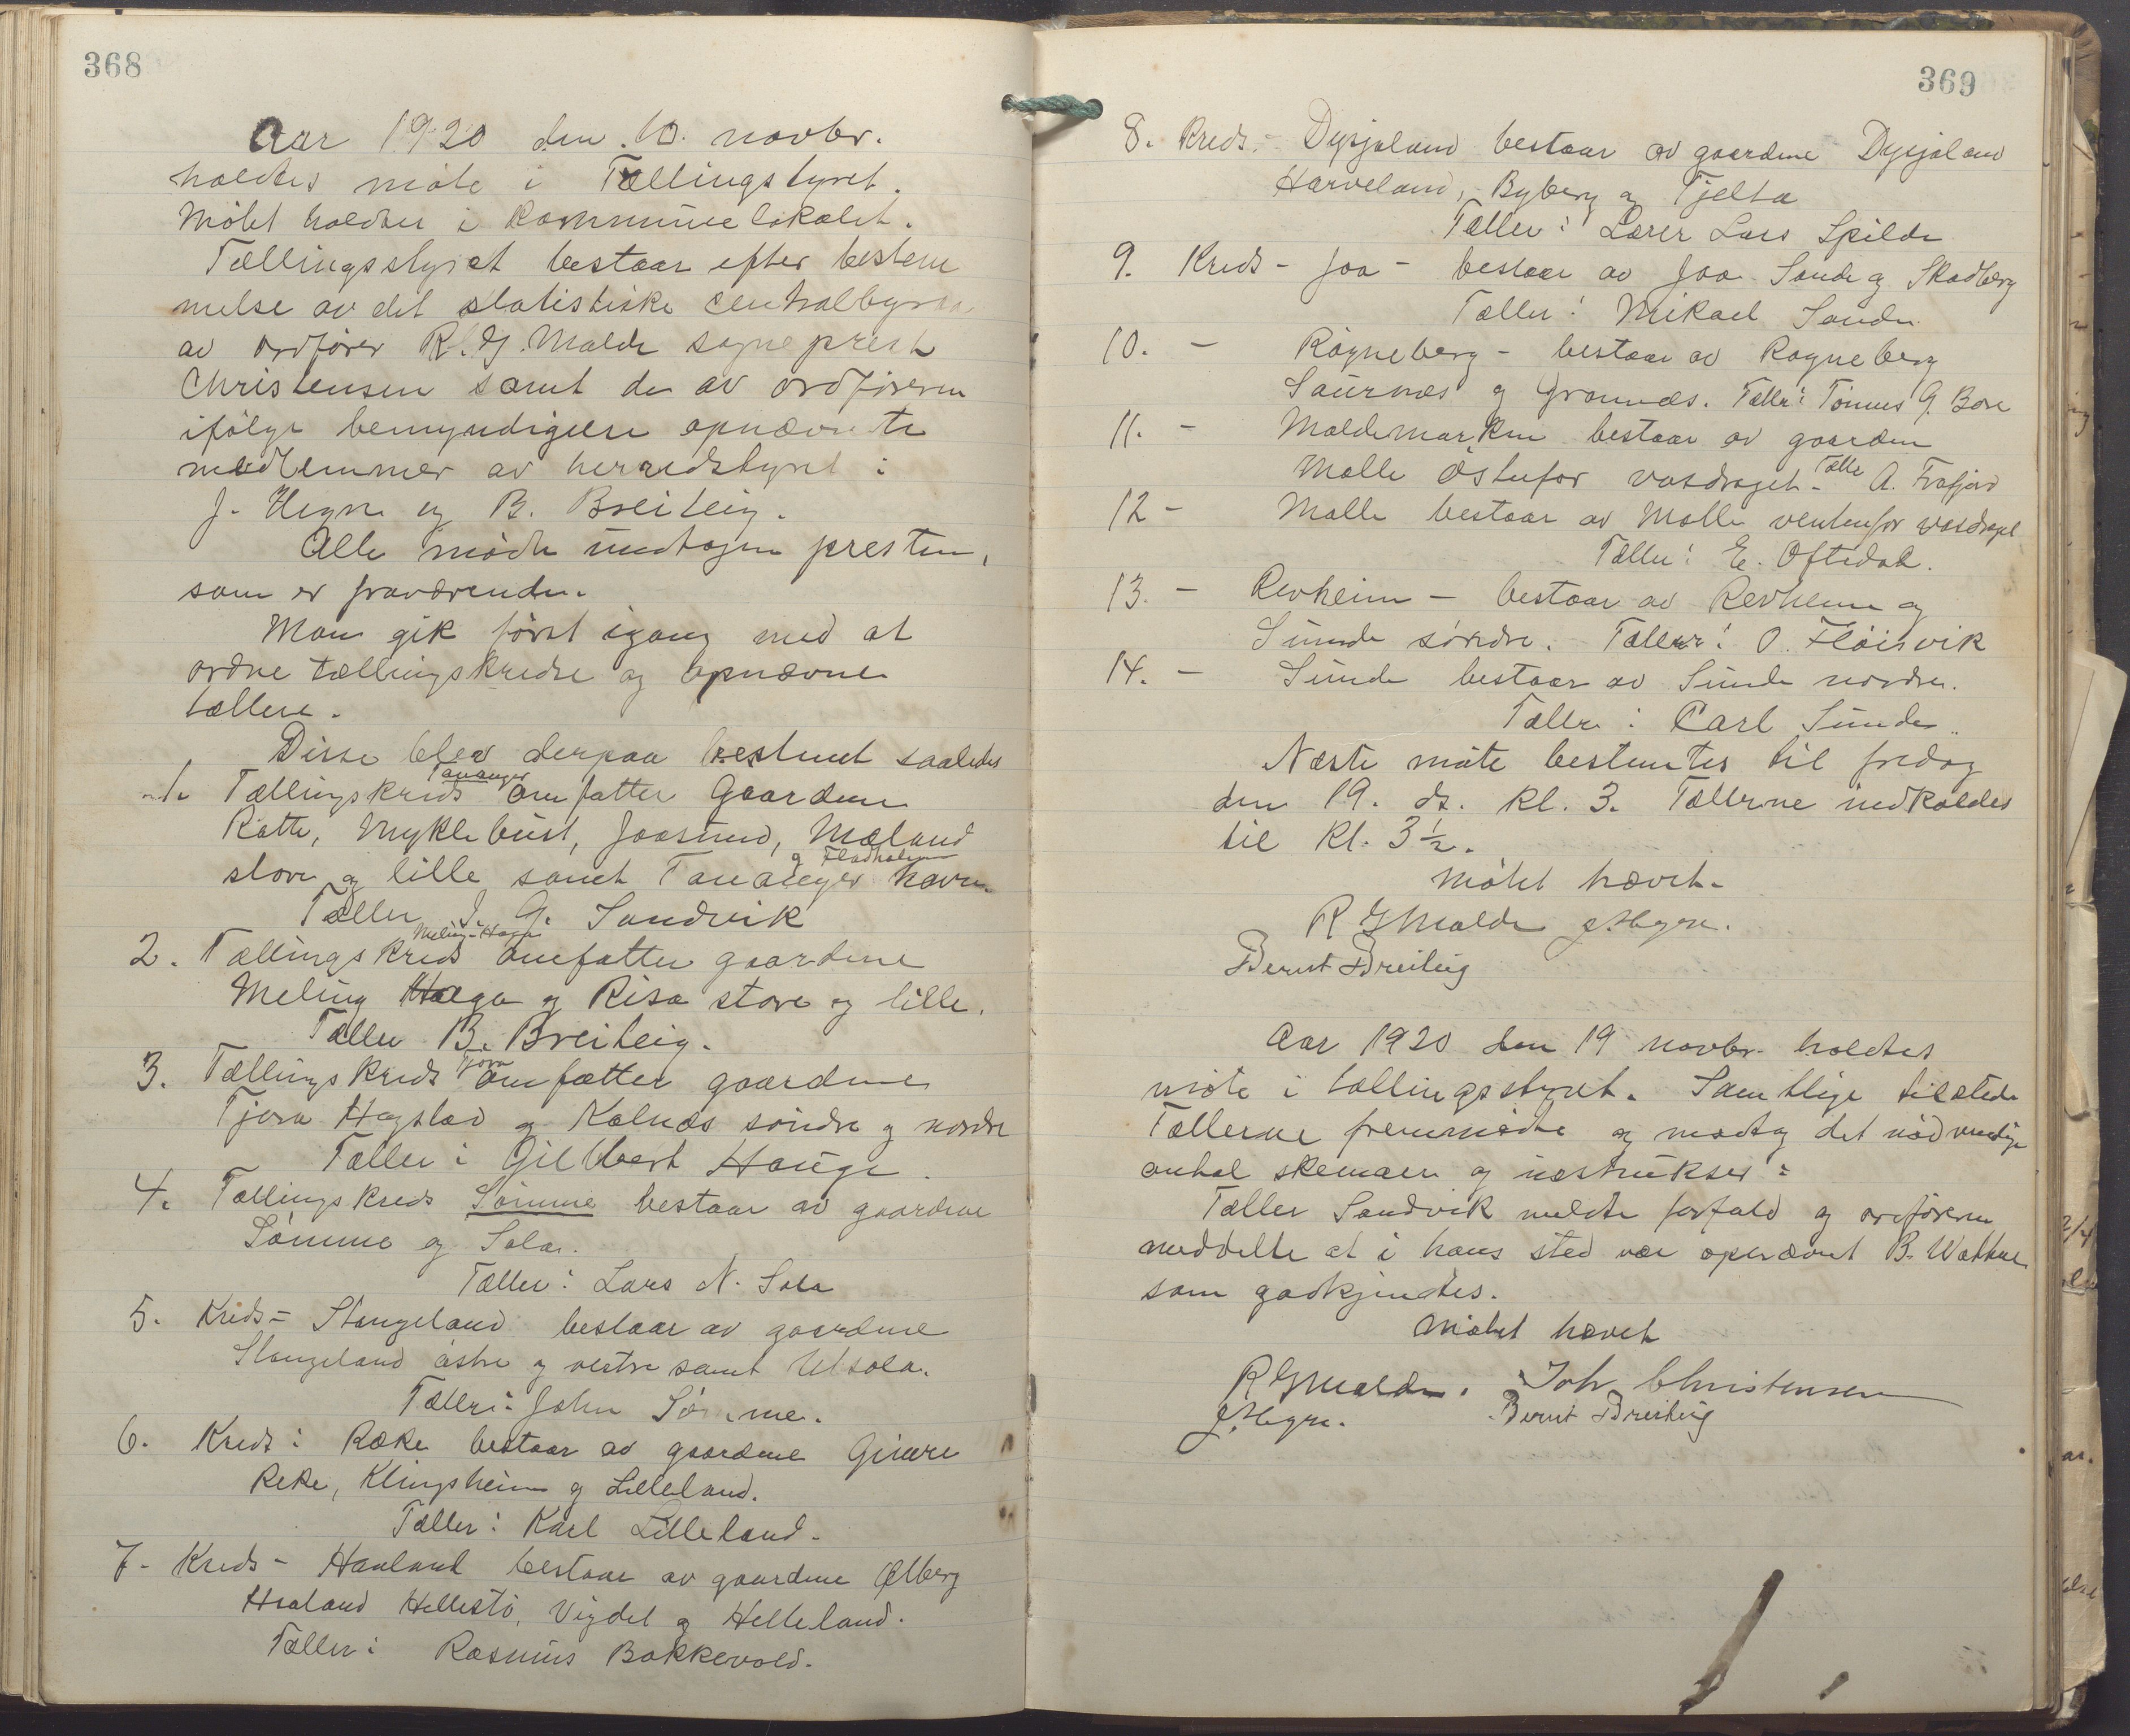 368
Aar 1920 den 10. novbr.
holdtes møte i Tællingstyret.
Møtet holdtes i kommunelokalet.
Tællingsstyret bestaar efter bestem
melse av det statistiske centralbyraa
av ordfører R. G. Malde sogneprest
Christensen samt de av ordføreren
ifølge bemyndigelse opnævnte
medlemmer av herredstyret:
J. Hegre og B. Breileig.
Alle mødte undtagen presten,
som er fraværende.
Man gik først igang med at
ordne tællingskredse og opnævne
tællere.
Disse blev derpaa bestemt saaledes
1. Tællingskreds Tananger omfatter Gaardene
Røtte, Myklebust, Joasund, Mæland
store og lille samt Tananger havn og Fladholmen
Tæller J. G. Sandvik
2. Tællingskreds Meling-Haga omfatter gaardene
Meling Haga og Risa store og lille.
Tæller B. Breileig.
3. Tællingskreds Tjora omfatter gaardene
Tjora Hogstad og Kolnæs søndre og nordre
Tæller: Gilbert Hauge.
4. Tællingskreds Sømme bestaar av gaardene
Sømme og Sola.
Tæller: Lars N. Sola
5. Kreds - Stangeland bestaar av gaardene
Stangeland østre og vestre samt Utsola.
Tæller: John Sømme.
6. Kreds: Røke bestaar av gaardene Gimre
Reke, Klingsheim og Lilleland.
Tæller: Karl Lilleland.
7- Kreds - Haaland bestaar av gaardene Ølberg
Haaland Hellestø, Vigdel og Helleland.
Tæller: Rasmus Bakkevold.
369
8. Kreds.- Dysjaland bestaar av gaardene Dysjaland
Harveland, Byberg og Tjelta
Tæller: Lærer Lars Spilde
9. Kreds - Joa - bestaar av Joa Sande og Skadberg
Tæller: Mikael Sande.
10. - Røgneberg - bestaar av Røgneberg
Saurnæs og Grannæs. Tæller: Tønnes G. Bore
11. - Maldemarken bestaar av gaarden
Malle østenfor vasdraget - Tæller A. Frafjord
12 - Malle bestaar av Malle vestenfor vasdraget
Tæller: E. Oftedal.
13. - Revheim - bestaar av Revheim og
Sunde søndre. Tæller: O. Fløisvik
14. - Sunde bestaar av Sunde nordre.
Tæller: Carl Sunde.
Næste møte bestemtes til fredag
den 19. ds. kl. 3. Tællerne indkaldes
til kl. 3½.
Møtet hævet.
R G Malde J. Hegre.
Bernt Breileig
Aar 1920 den 19 novbr. holdtes
møte i tællingsstyret. Samtlige tilstede
Tællerne fremmødte og modtog det nødvendige
antal skemaer og instrukser.
Tæller Sandvik meldte forfald og ordføreren
meddelte at i hans sted var opnævnt B.
som godkjendtes.
Møtet hævet
R G Malde. Joh Christensen
J. Hegre. Bernt Breileig